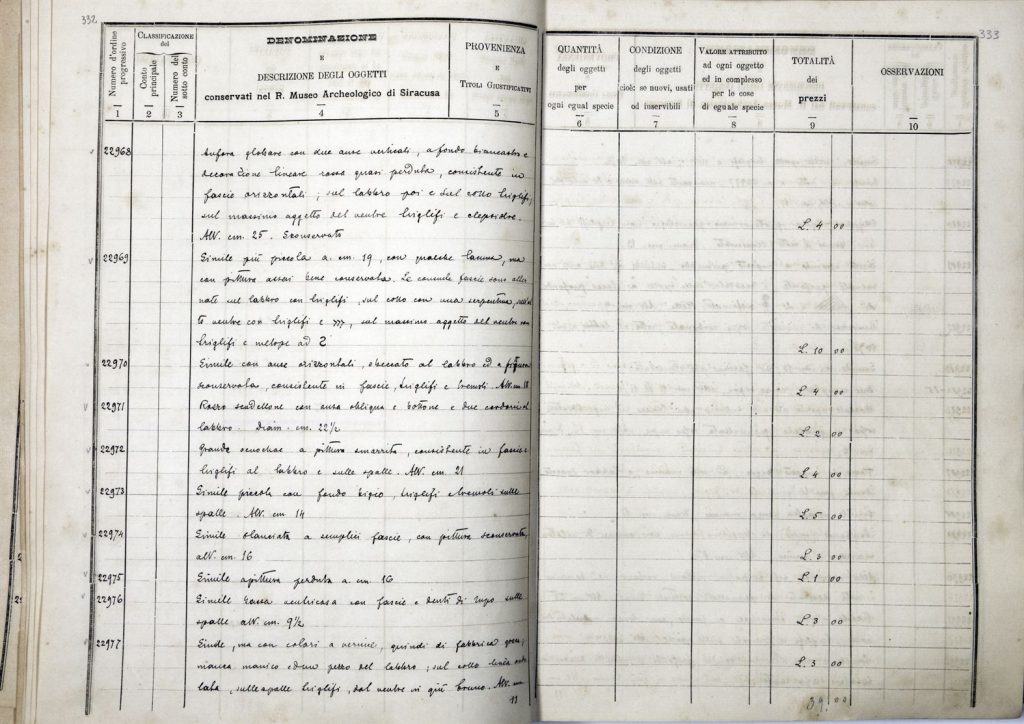 332
333
Numero d'ordine progressivo
CLASSIFICAZIONE
del
Conto principale
Numero del sotto conto
DENOMINAZIONE
E
DESCRIZIONE DEGLI OGGETTI
conservati nel R. Museo Archeologico di Siracusa
PROVENIENZA
E
TITOLI GIUSTIFICATIVI
QUANTITÀ
degli oggetti
per
ogni egual specie
CONDIZIONE
degli oggetti
cioè: se nuovi, usati
od inservibili
VALORE ATTRIBUITO
ad ogni oggetto
ed in complesso
per le cose
di eguale specie
TOTALITÀ
dei
prezzi
OSSERVAZIONI
1 2 3 4 5 6 7 8 9 10
22968 Anfora globare con due anse verticali, a fondo biancastro e
decorazione lineare rossa quasi perduta, consistente in
fascie orizzontali; sul labbro poi e sul collo triglifi,
sul massimo aggetto del ventre triglifi e clepsidre.
Alt. cm. 25. Sconservato L. 4 00
22969 Simile più piccola a. cm. 19, con qualche lacuna, ma
con pittura assai bene conservata. Le consuete fascie sono alter
nate sul labbro con triglifi, sul collo con una serpentina,
to ventre con triglifi e, sul massimo aggetto del ventre con
triglifi e metope ad 2 L. 10 00
22970 Simile con anse orizzontali, sbeccato al labbro ed a pittura
sconservata, consistente in fascie, triglifi e tremoli. Alt. cm. 18 L. 4 00
22971 Rozzo scodellone con ansa obliqua e bottone e due cordoni al
labbro. Diam. cm. 22½ L. 2 00
22972 Grande oenochoe a pittura smarrita, consistente in fascie e
triglifi al labbro e sulle spalle. Alt. cm. 21 L. 4 00
22973 Simile piccola con fondo bigio, triglifi e tremoli sulle
spalle. Alt. cm. 14 L. 5 00
22974 Simile slanciata a semplici fascie, con pittura sconservata,
alt. cm. 16 L. 3 00
22975 Simile a pittura perduta a. cm. 16 L. 1 00
22976 Simile bassa ventricosa con fascie e denti di lupo sulle
spalle alt. cm. 9½ L. 3 00
22977 Simile, ma con colori a vernice, quindi di fabbrica greca;
manca manico ed un pezzo del labbro; sul collo linea ondu
lata, sulle spalle triglifi, dal ventre in giù bruno. Alt. cm
11 L. 3 00
39.00